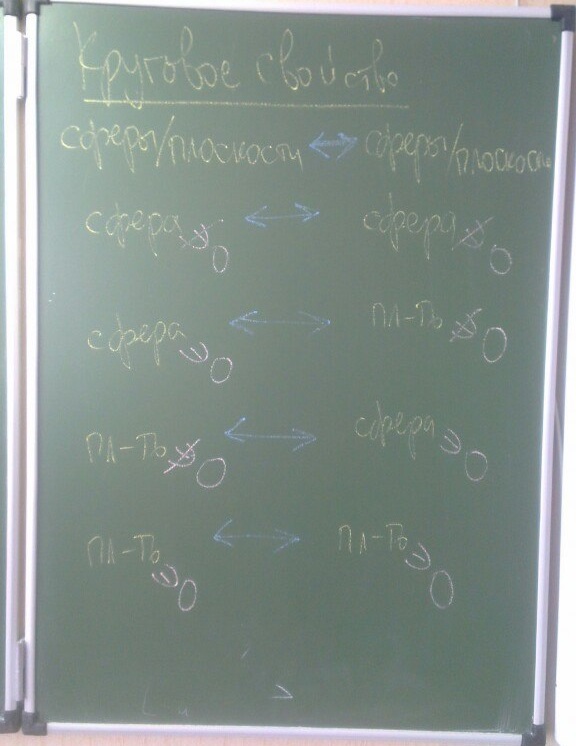 Круговое свойство
сферы/плоскости ⟷ сферы/плоскости
сфера ∌ O ⟷ сфера ∌ O
сфера ∋ O ⟷ пл-ть ∌ O
пл-ть ∌ O ⟷ сфера ∋ O
пл-ть ∋ O ⟷ пл-ть ∋ O